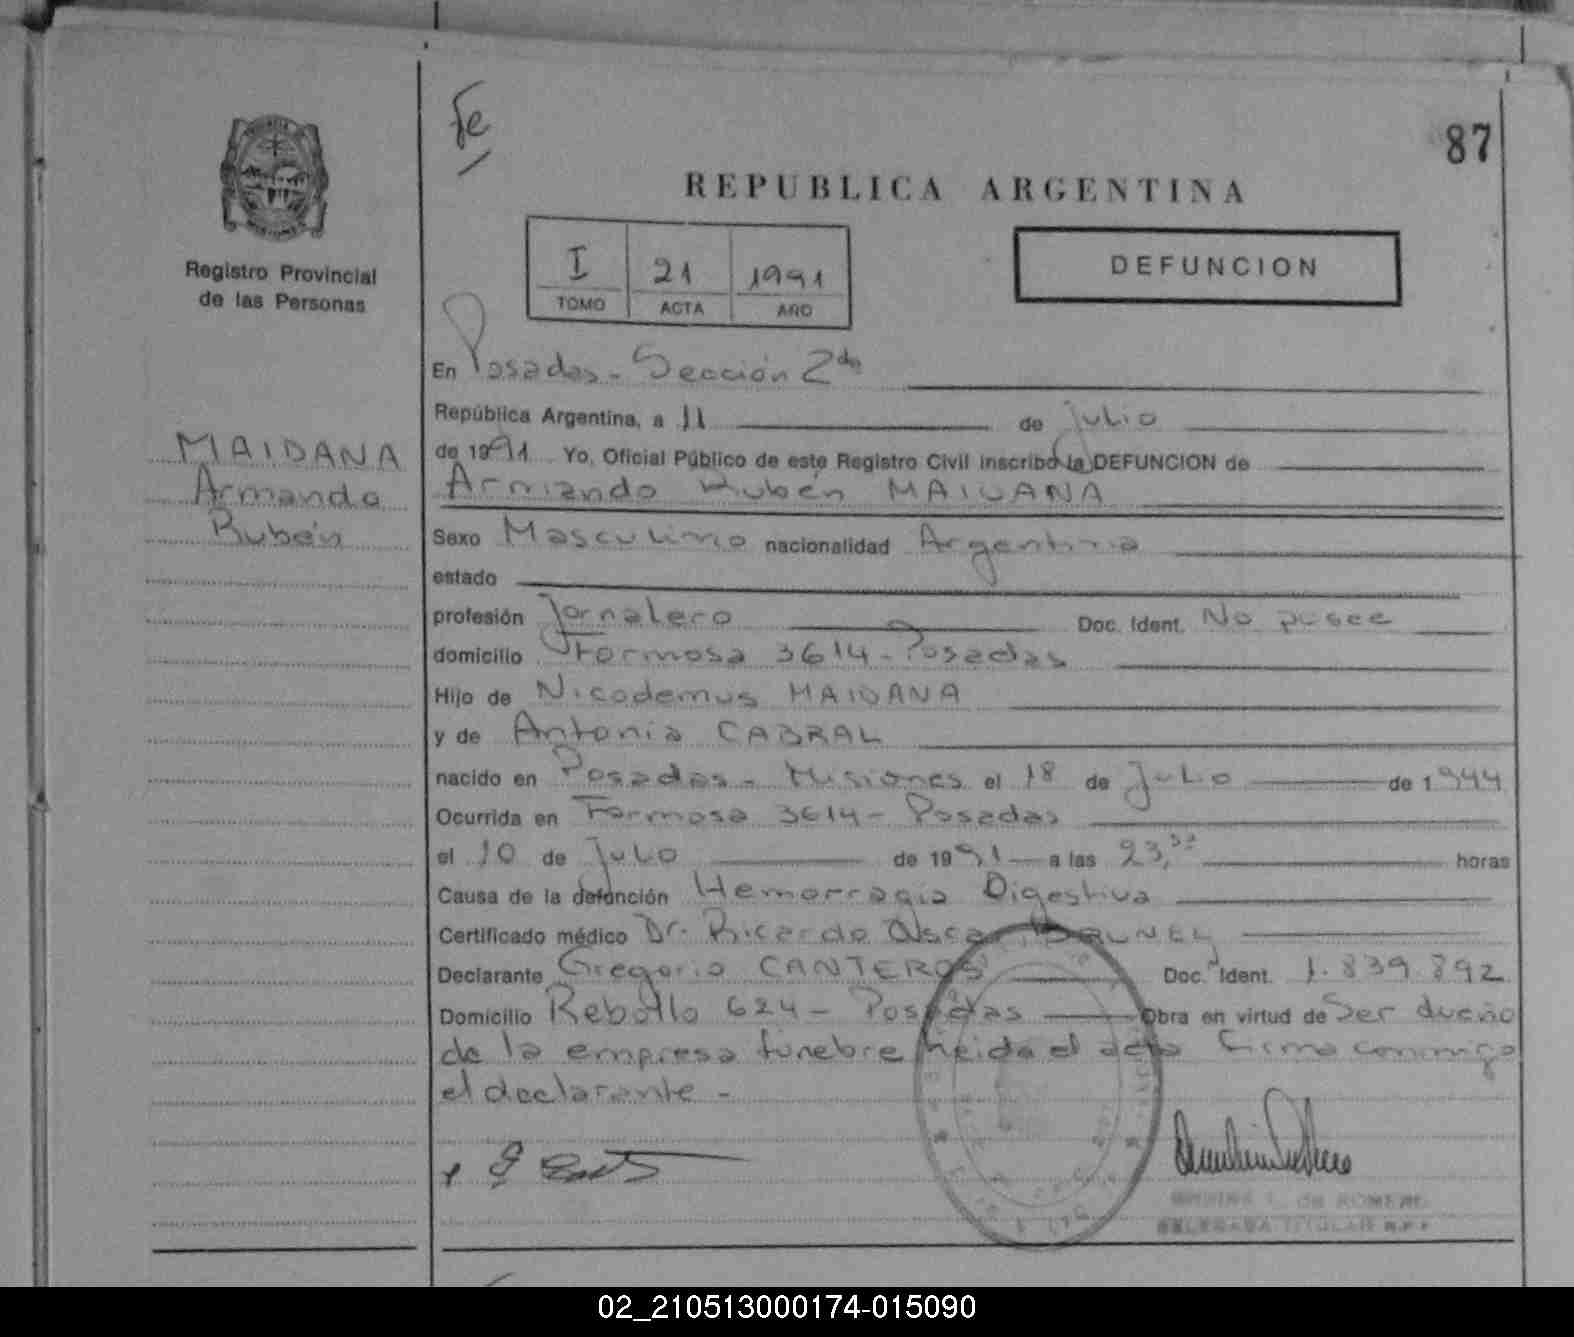 Fe
87
REPUBLICA ARGENTINA
I 21 1991
TOMO ACTA AÑO
DEFUNCION
Registro Provincial
de las Personas
MAIDANA
Armando
Rubén
En Posadas - Sección 2da
República Argentina, a 11 de Julio
de 1991 Yo, Oficial Público de este Registro Civil inscribo la DEFUNCION de
Armando Rubén MAIDANA
Sexo Masculino nacionalidad Argentina
estado
profesión Jornalero Doc. Ident. No posee
domicilio Formosa 3614 - Posadas
Hijo de Nicodemus MAIDANA
y de Antonia CABRAL
nacido en Posadas - Misiones el 18 de Julio de 1944
Ocurrida en Formosa 3614 - Posadas
el 10 de Julio de 1991 a las 23,50 horas
Causa de la defunción Hemorragia Digestiva
Certificado médico Dr. Ricardo Oscar
Declarante Gregorio CANTEROS Doc. Ident. 1.839.892
Domicilio Rebollo 624 - Posadas Obra en virtud de Ser dueño
de la empresa fúnebre leida el acta firma conmigo
el declarante -
de ROMERO
DELEGADA TITULAR R.P.P.
02_210513000174-015090